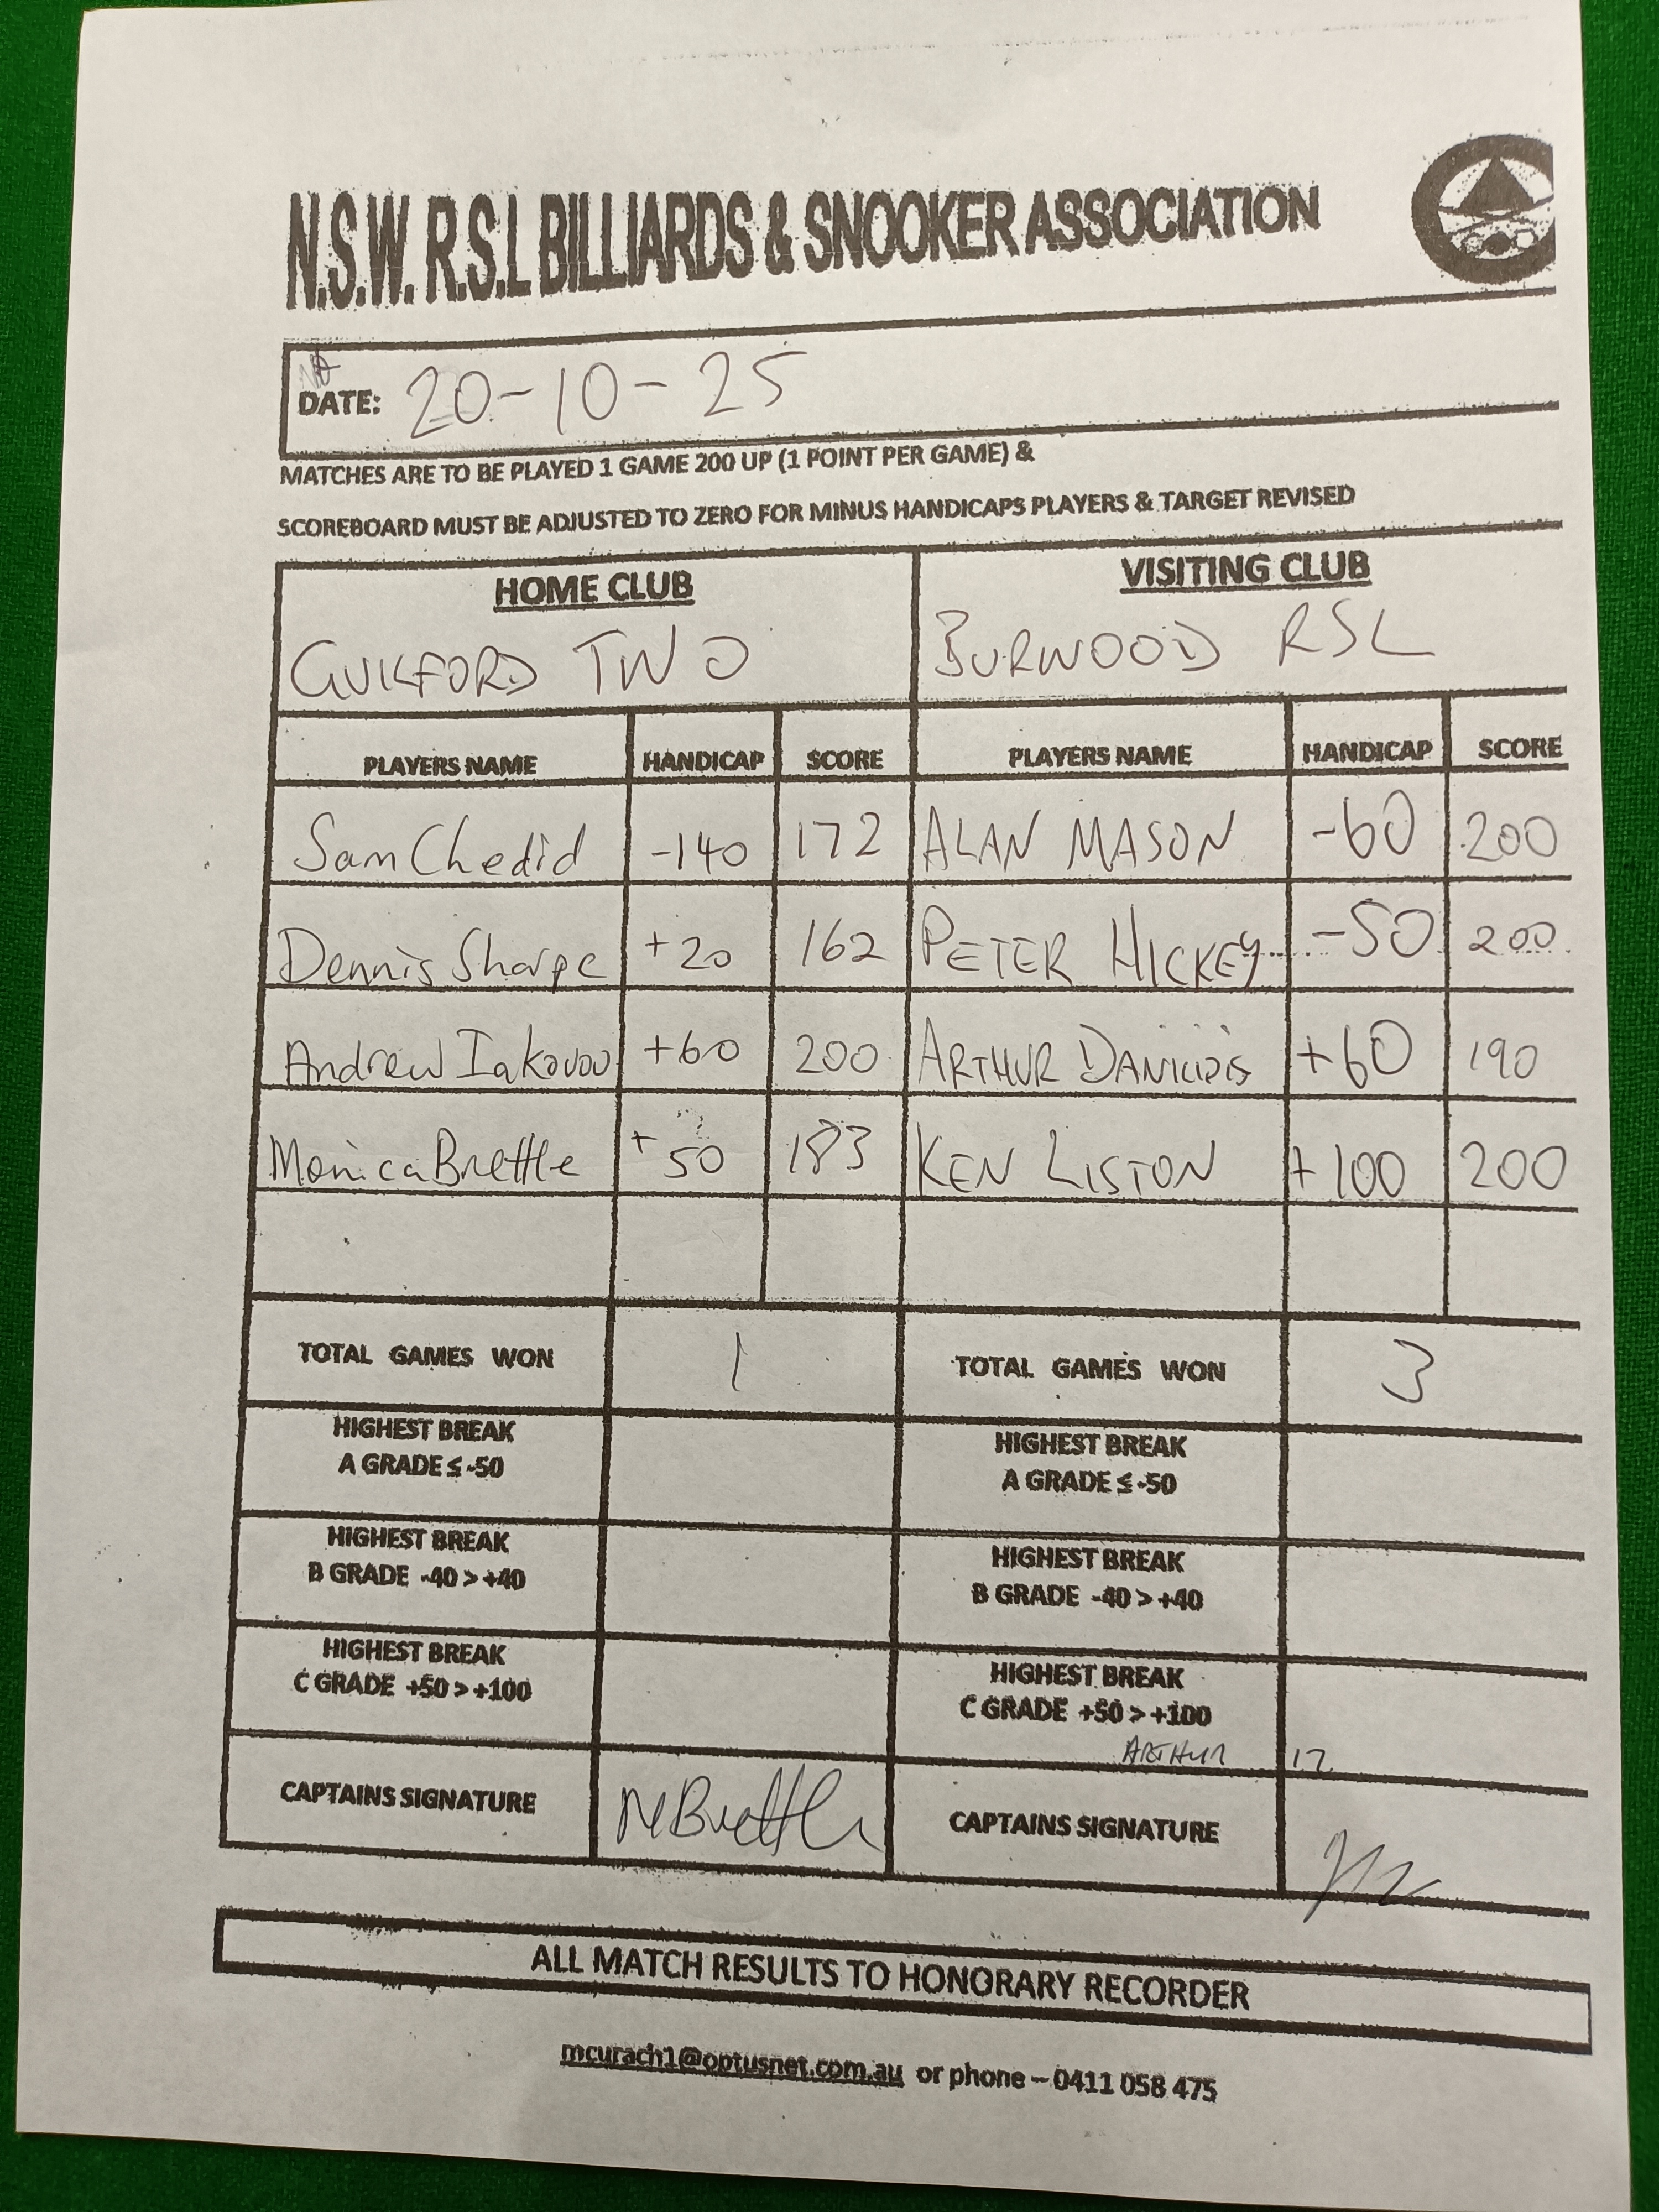 N.S.W. R.S.L BILLIARDS & SNOOKER ASSOCIATION
DATE: 20-10-25
MATCHES ARE TO BE PLAYED 1 GAME 200 UP (1 POINT PER GAME) &
SCOREBOARD MUST BE ADJUSTED TO ZERO FOR MINUS HANDICAPS PLAYERS & TARGET REVISED
HOME CLUB VISITING CLUB
GUILFORD TWO BURWOOD RSL
PLAYERS NAME HANDICAP SCORE PLAYERS NAME HANDICAP SCORE
Sam Chedid -140 172 ALAN MASON -60 200
Dennis Sharpe +20 162 PETER HICKEY -50 200
Andrew Iakovou +60 200 ARTHUR +60 190
Monica Brettle +50 183 KEN LISTON +100 200
TOTAL GAMES WON 1 TOTAL GAMES WON 3
HIGHEST BREAK HIGHEST BREAK
A GRADE ≤ -50 A GRADE ≤ -50
HIGHEST BREAK HIGHEST BREAK
B GRADE -40 > +40 B GRADE -40 > +40
HIGHEST BREAK HIGHEST BREAK
C GRADE +50 > +100 C GRADE +50 > +100
ARTHUR 17
CAPTAINS SIGNATURE MBrettle CAPTAINS SIGNATURE
ALL MATCH RESULTS TO HONORARY RECORDER
mcurach1@optusnet.com.au or phone – 0411 058 475